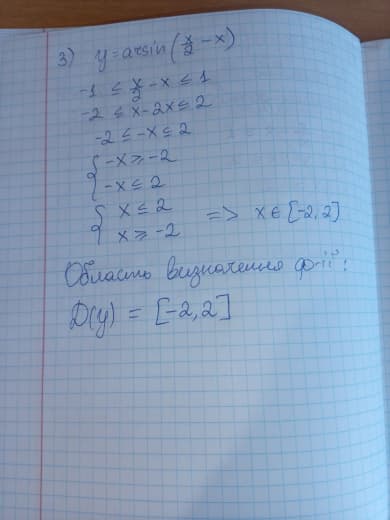 3) y=arsin(x/2 - x)
-1 ≤ x/2 - x ≤ 1
-2 ≤ x-2x ≤ 2
-2 ≤ -x ≤ 2
{ -x ≥ -2
-x ≤ 2
{ x ≤ 2
x ≥ -2 => x ∈ [-2, 2]
Область визначення ф-ії:
D(y) = [-2, 2]